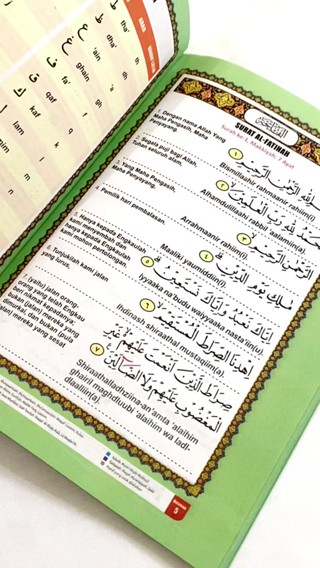 th
dh
gh
f
q
k
l
m
n
tha'
dha'
'ain
ghain
fa'
qaf
kaf
lam
mim
ط
ظ
ع
غ
ف
ق
ك
ل
SURAT AL-FATIHAH
Surah ke 1, Makkiyah, 7 Ayat
1. Dengan nama Allah Yang
Maha Pengasih, Maha
Penyayang.
بِسْمِ اللهِ الرَّحْمٰنِ الرَّحِيْمِ ١
Bismillaahir rahmaanir rahiim(i)
2. Segala puji bagi Allah,
Tuhan seluruh alam,
اَلْحَمْدُ لِلّٰهِ رَبِّ الْعٰلَمِيْنَ ٢
Alhamdulillaahi rabbil 'aalamiin(a).
3. Yang Maha Pengasih,
Maha Penyayang,
الرَّحْمٰنِ الرَّحِيْمِ ٣
Arrahmaanir rahiim(i).
4. Pemilik hari pembalasan.
مٰلِكِ يَوْمِ الدِّيْنِ ٤
Maaliki yaumiddiin(i).
5. Hanya kepada Engkaulah
kami menyembah dan
hanya kepada Engkaulah
kami mohon pertolongan.
اِيَّاكَ نَعْبُدُ وَاِيَّاكَ نَسْتَعِيْنُ ٥
Iyyaaka na'budu waiyyaaka nasta'iin(u).
6. Tunjukilah kami jalan
yang lurus,
اِهْدِنَا الصِّرَاطَ الْمُسْتَقِيْمَ ٦
Ihdinash shiraathal mustaqiim(a)
7. (yaitu) jalan orang-
orang yang telah Engkau
beri nikmat kepadanya;
bukan (jalan) mereka yang
dimurkai, dan bukan (pula
jalan) mereka yang sesat
صِرَاطَ الَّذِيْنَ اَنْعَمْتَ عَلَيْهِمْ غَيْرِ
الْمَغْضُوْبِ عَلَيْهِمْ وَلَا الضَّاۤلِّيْنَ ٧
Shiraathalladziina an'amta 'alaihim
ghairil maghdhuubi 'alaihim wa ladl-
dlaalliin(a).
5